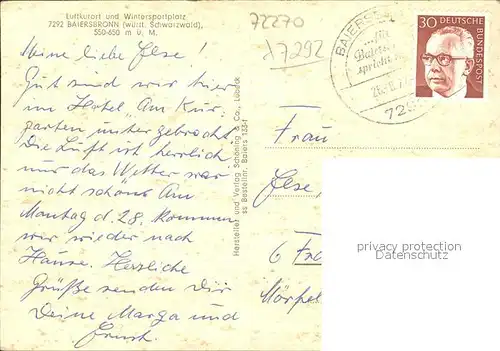 Luftkurort und Wintersportplatz
7292 BAIERSBRONN (württ. Schwarzwald),
550-650 m ü. M.
72270
d 7292
BAIERS
sprich
729
30
DEUTSCHE
BUNDESPOST
Meine liebe Else!
Gut sind wir hier
im Hotel "Am Kur-
garten untergebracht
Die Luft ist herrlich
nur das Wetter war
nicht schön. Am
Montag d. 28. kommen
wir wieder nach
Hause. Herzliche
Grüße senden Dir
Deine Marga und
Ernst.
Hersteller und Verlag Schöning & Co., Lübeck
ss Bestellnr. Baiers 133-f
Frau
Else,
6 Fra
Mörfel
privacy protection
Datenschutz